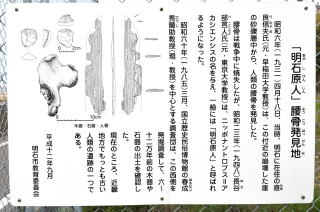 「明石原人」腰骨発見地
昭和六年(一九三一)四月十八日、当時、明石に在住の直
良信夫氏(元・早稲田大学教授)は、この付近の崩壊した崖
の砂礫層中から、人類の腰骨を発見した。
腰骨は戦争中に焼失したが、昭和二三年(一九四八)長谷
部言人氏(元・東京大学教授)は、ニッポナントロプス=ア
カシエンシスの名を与え、一般には「明石原人」と呼ばれ
るようになった。
昭和六十年(一九八五)三月、国立歴史民俗博物館の春成
秀爾助教授(現・教授)を中心とする調査団は、この西側を
発掘調査して、六~
十二万年前の木器や
石器の出土を確認し
た。
現在のところ、近畿
地方でもっとも古い
人類の遺跡の一つで
ある。
平成十二年九月
明石市教育委員会
0 2cm
0 10cm
木器・石器・人骨